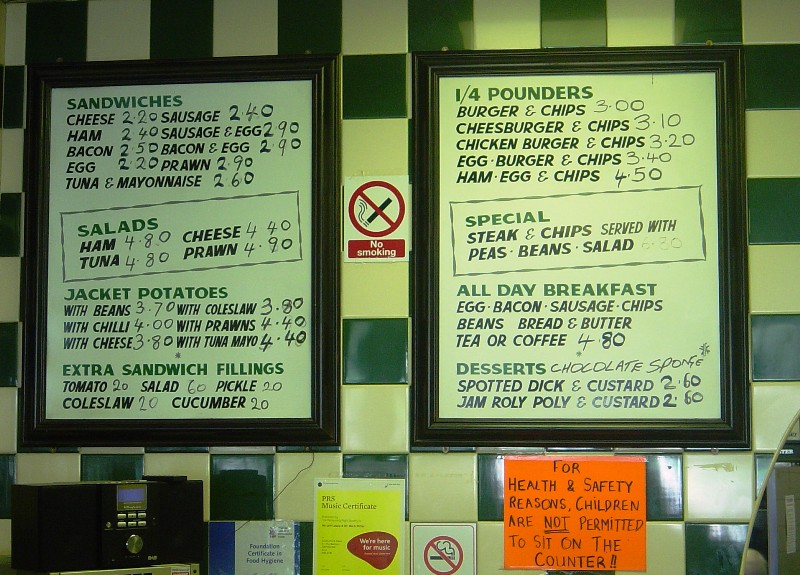 SANDWICHES
CHEESE 2.20 SAUSAGE 2.40
HAM 2.40 SAUSAGE & EGG 2.90
BACON 2.50 BACON & EGG 2.90
EGG 2.20 PRAWN 2.90
TUNA & MAYONNAISE 2.60
SALADS
HAM 4.80 CHEESE 4.40
TUNA 4.80 PRAWN 4.90
JACKET POTATOES
WITH BEANS 3.70 WITH COLESLAW 3.80
WITH CHILLI 4.00 WITH PRAWNS 4.40
WITH CHEESE 3.80 WITH TUNA MAYO 4.40
*
EXTRA SANDWICH FILLINGS
TOMATO 20 SALAD 60 PICKLE 20
COLESLAW 20 CUCUMBER 20
No
smoking
1/4 POUNDERS
BURGER & CHIPS 3.00
CHEESBURGER & CHIPS 3.10
CHICKEN BURGER & CHIPS 3.20
EGG·BURGER & CHIPS 3.40
HAM·EGG & CHIPS 4.50
SPECIAL
STEAK & CHIPS SERVED WITH
PEAS·BEANS·SALAD 6.80
ALL DAY BREAKFAST
EGG·BACON·SAUSAGE·CHIPS
BEANS BREAD & BUTTER
TEA OR COFFEE 4.80
DESSERTS *CHOCOLATE SPONGE*
SPOTTED DICK & CUSTARD 2.60
JAM ROLY POLY & CUSTARD 2.60
Foundation
Certificate in
Food Hygiene
PRS
Music Certificate
We're here
for music
FOR
HEALTH & SAFETY
REASONS, CHILDREN
ARE NOT PERMITTED
TO SIT ON THE
COUNTER!!